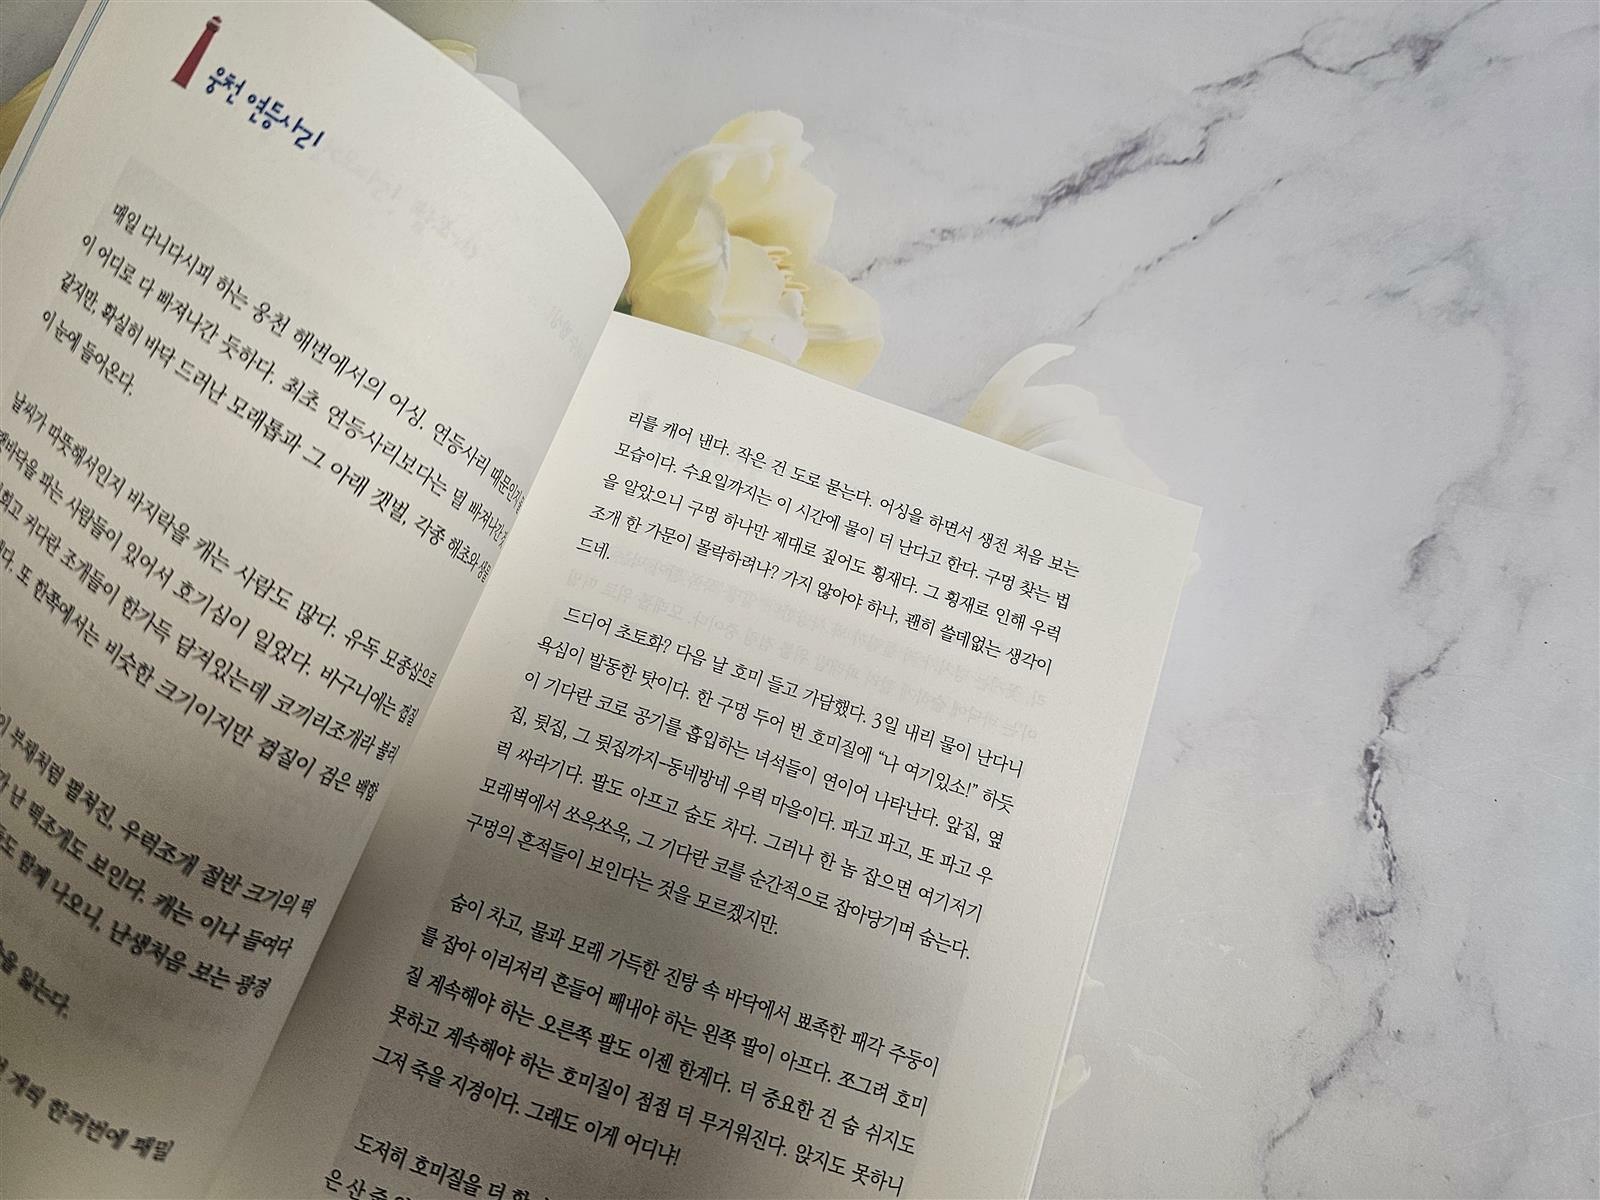 웅천 연등사리
매일 다니다시피 하는 웅천 해변에서의 어싱. 연등사리 때문인지
이 어디로 다 빠져나간 듯하다. 최초 연등사리보다는 덜 빠져나간
같지만, 확실히 바닥 드러난 모래톱과 그 아래 갯벌, 각종 해초와
이 눈에 들어온다.
날씨가 따뜻해서인지 바지락을 캐는 사람도 많다. 유독 모종삽으로
갯바닥을 파는 사람들이 있어서 호기심이 일었다. 바구니에는 껍질
커다란 조개들이 한가득 담겨있는데 코끼리조개라 불리
또 한쪽에서는 비슷한 크기이지만 껍질이 검은 백합
부채처럼 펼쳐진, 우럭조개 절반 크기의 떡
난 떡조개도 보인다. 캐는 이나 들여다
함께 나오니, 난생처음 보는 광경
잃는다.
개씩 한꺼번에 패밀
리를 캐어 낸다. 작은 건 도로 묻는다. 어싱을 하면서 생전 처음 보는
모습이다. 수요일까지는 이 시간에 물이 더 난다고 한다. 구멍 찾는 법
을 알았으니 구멍 하나만 제대로 짚어도 횡재다. 그 횡재로 인해 우럭
조개 한 가문이 몰락하려나? 가지 않아야 하나, 괜히 쓸데없는 생각이
드네.
드디어 초토화? 다음 날 호미 들고 가담했다. 3일 내리 물이 난다니
욕심이 발동한 탓이다. 한 구멍 두어 번 호미질에 “나 여기있소!” 하듯
이 기다란 코로 공기를 흡입하는 녀석들이 연이어 나타난다. 앞집, 옆
집, 뒷집, 그 뒷집까지-동네방네 우럭 마을이다. 파고 파고, 또 파고 우
럭 싸라기다. 팔도 아프고 숨도 차다. 그러나 한 놈 잡으면 여기저기
모래벽에서 쏘옥쏘옥, 그 기다란 코를 순간적으로 잡아당기며 숨는다.
구멍의 흔적들이 보인다는 것을 모르겠지만.
숨이 차고, 물과 모래 가득한 진탕 속 바닥에서 뾰족한 패각 주둥이
를 잡아 이리저리 흔들어 빼내야 하는 왼쪽 팔이 아프다. 쪼그려 호미
질 계속해야 하는 오른쪽 팔도 이젠 한계다. 더 중요한 건 숨 쉬지도
못하고 계속해야 하는 호미질이 점점 더 무거워진다. 앉지도 못하니
그저 죽을 지경이다. 그래도 이게 어디냐!
도저히 호미질을 더 할